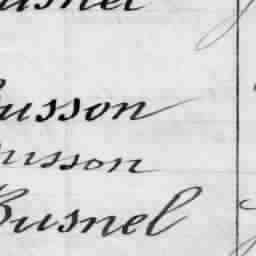 usnel
usson
usson
Busnel